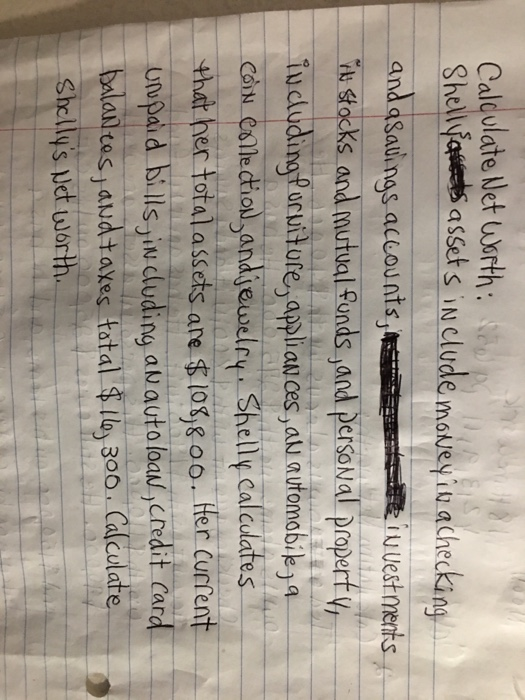 Calculate Net Worth:
Shelly's assets include money in a checking
and a savings accounts, investments
in stocks and mutual funds, and personal property,
including furniture, appliances, an automobile, a
coin collection, and jewelry. Shelly calculates
that her total assets are $108,800. Her current
unpaid bills, including an auto loan, credit card
balances, and taxes total $16,300. Calculate
Shelly's Net worth.